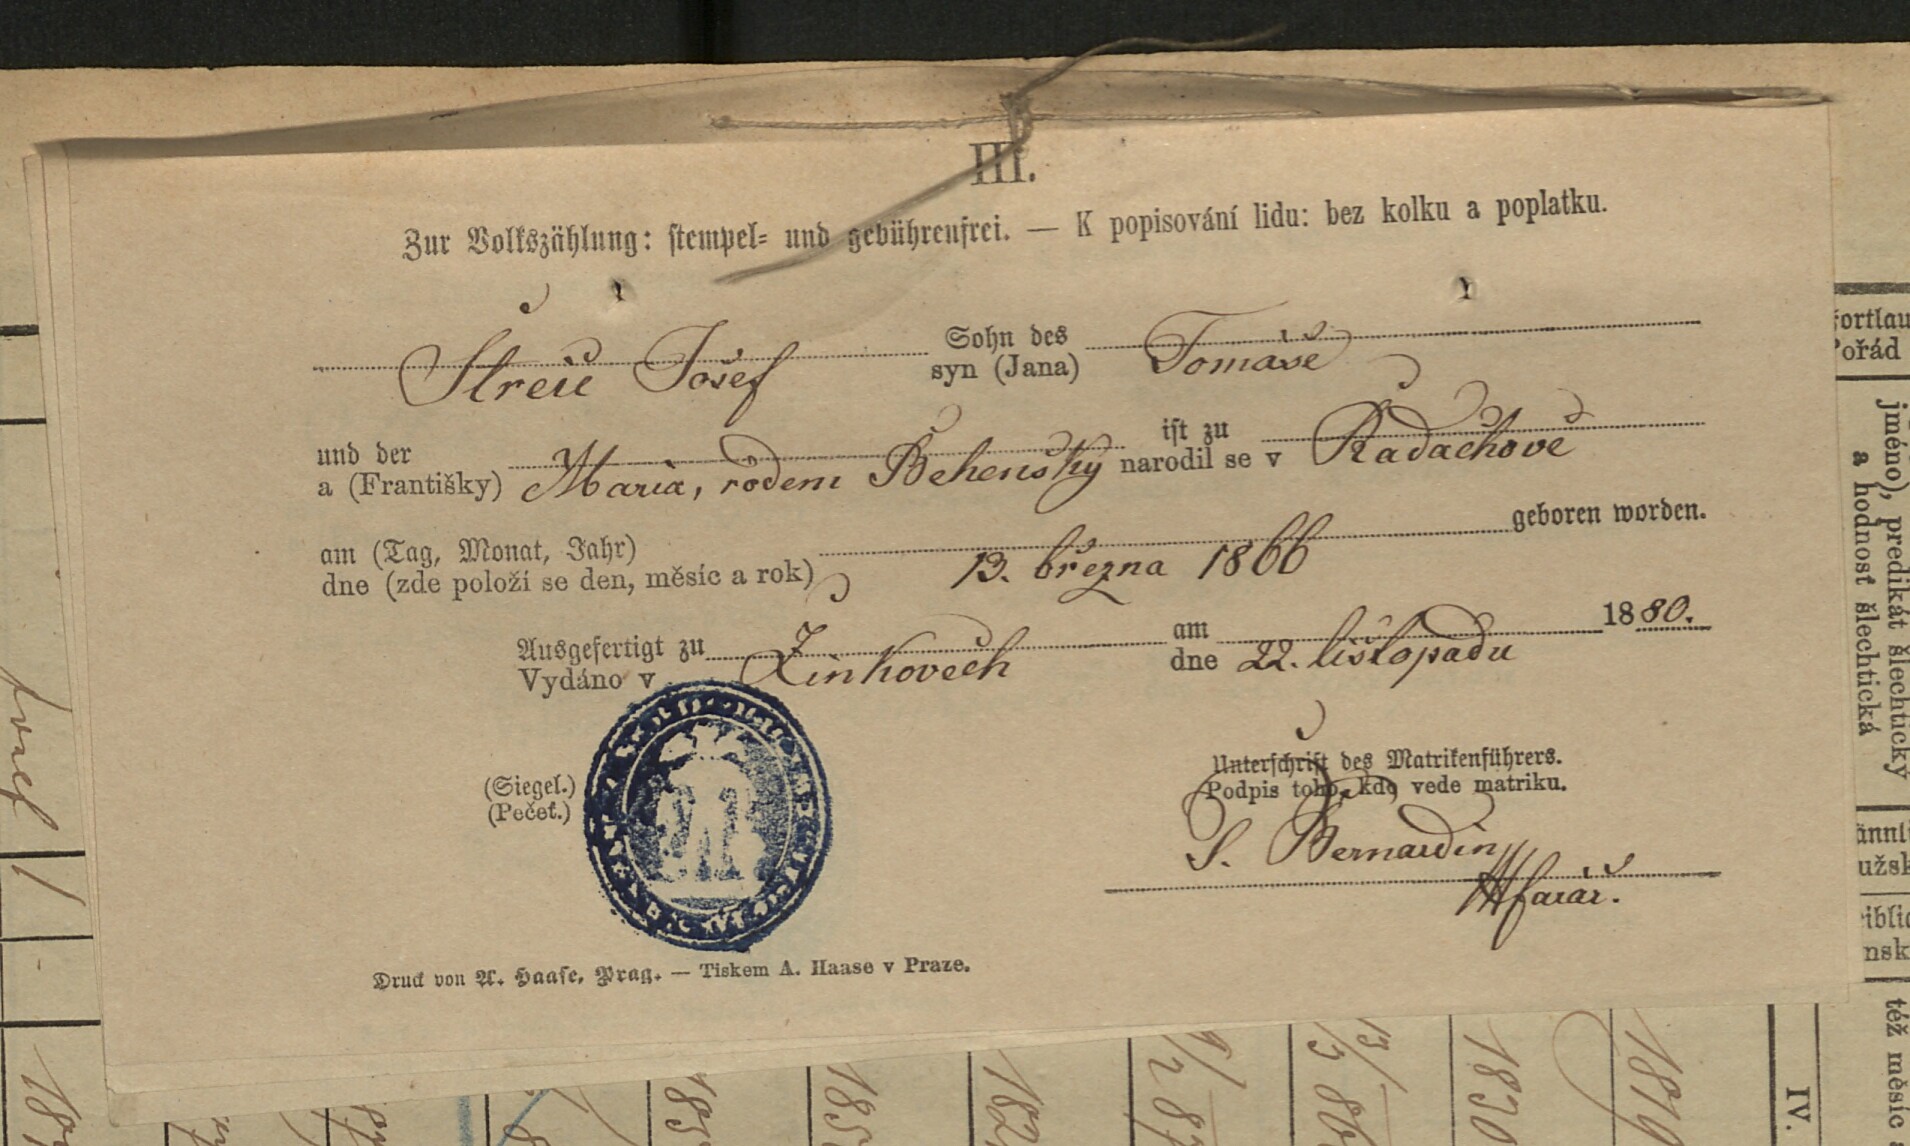 III.
Zur Volkszählung: stempel= und gebührenfrei. — K popisování lidu: bez kolku a poplatku.
Sohn des
Josef syn (Jana) Tomáše
und der ist zu
a (Františky) Maria, rodem narodil se v Radachově
geboren worden.
am (Tag, Monat, Jahr)
dne (zde položí se den, měsíc a rok) 13. března 1866
Ausgefertigt zu am 1880.
Vydáno v Žinkovech dne 22. listopadu
Unterschrift des Matrikenführers.
(Siegel.) Podpis toho, kdo vede matriku.
(Pečeť.)
S. Bernardin
farář.
Druck von A. Haase, Prag. — Tiskem A. Haase v Praze.
jméno), predikát šlechtický
a hodnosť šlechtická
též měsíc
IV.
Josef
1830
1819